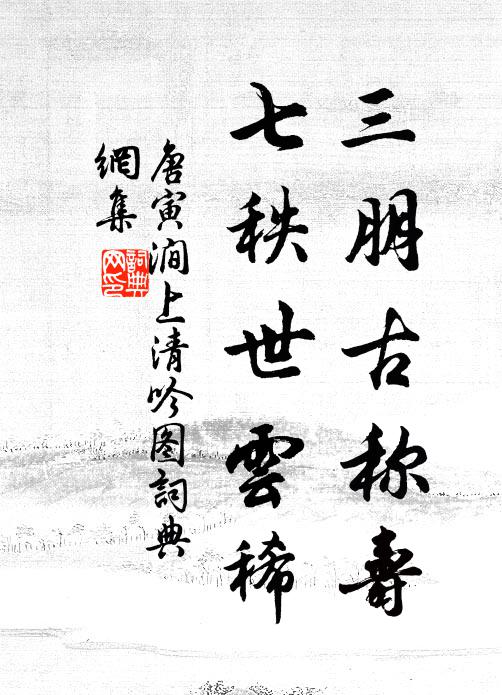 三朋古称壽
七秩世雲稀
唐寅澗上清吟图詞典
網集
詞典
网印